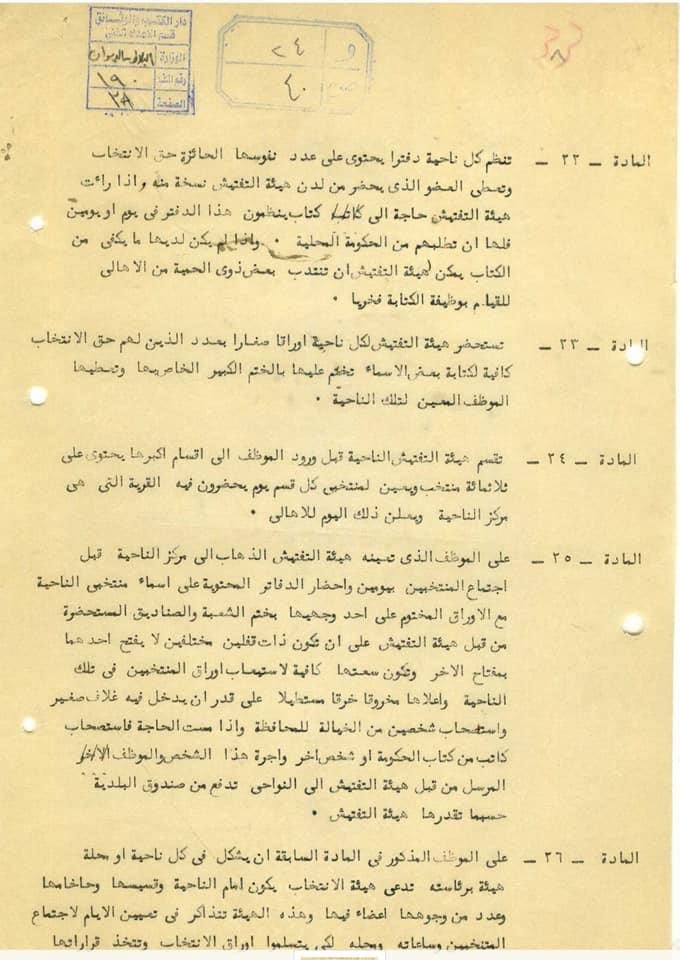 دار الكتب والوثائق
الوزارة البلاط الديوان
رقم الملف ١٩٠
الصفحة ٢٨
و ٢٤
ص ٤٠
٨
المادة ـ ٢٢ ـ تنظم كل ناحية دفترا يحتوى على عدد نفوسها الحائزة حق الانتخاب
وتعطى العضو الذى يحضر من لدن هيئة التفتيش نسخة منه واذا رائت
هيئة التفتيش حاجة الى كتاب ينظمون هذا الدفتر فى يوم او يومين
فلها ان تطلبهم من الحكومة المحلية ٠ واذا لم يكن لديها ما يكفى من
الكتاب يمكن (هيئة التفتيش ان تنتدب بعض ذوى الحمية من الاهالى
للقيام بوظيفة الكتابة فخريا ٠
المادة ـ ٢٣ ـ تستحضر هيئة التفتيش لكل ناحية اوراقا صغارا بعدد الذين لهم حق الانتخاب
كافية لكتابة بعض الاسماء تختم عليها بالختم الكبير الخاص بها وتعطيها
الموظف المعين لتلك الناحية ٠
المادة ـ ٢٤ ـ تقسم هيئة التفتيش الناحية قبل ورود الموظف الى اقسام اكبرها يحتوى على
ثلاثمائة منتخب ويعين لمنتخبى كل قسم يوم يحضرون فيه القرية التى هى
مركز الناحية ويعلن ذلك اليوم للاهالى ٠
المادة ـ ٢٥ ـ على الموظف الذى تعينه هيئة التفتيش الذهاب الى مركز الناحية قبل
اجتماع المنتخبين بيومين واحضار الدفاتر المحتوية على اسماء منتخبى الناحية
مع الاوراق المختوم على احد وجهيها بختم الشعبة والصناديق المستحضرة
من قبل هيئة التفتيش على ان تكون ذات قفلين مختلفين لا يفتح احدهما
بمفتاح الاخر وتكون سعتها كافية لاستيعاب اوراق المنتخبين فى تلك
الناحية واعلاها مخروقا خرقا مستطيلا على قدر ان يدخل فيه غلاف صغير
واستصحاب شخصين من الخيالة للمحافظة واذا مست الحاجة فاستصحاب
كاتب من كتاب الحكومة او شخص اخر واجرة هذا الشخص والموظف
المرسل من قبل هيئة التفتيش الى النواحى تدفع من صندوق البلدية
حسبما تقدرها هيئة التفتيش ٠
المادة ـ ٢٦ ـ على الموظف المذكور فى المادة السابقة ان يشكل فى كل ناحية او محلة
هيئة برئاسته تدعى هيئة الانتخاب يكون امام الناحية وقسيسها وحاخامها
وعدد من وجوهها اعضاء فيها وهذه الهيئة تتذاكر فى تعيين الايام لاجتماع
المنتخبين وساعاته ومحله لكى يتسلموا اوراق الانتخاب وتتخذ قراراتها